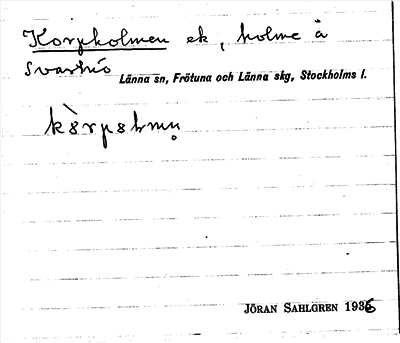 Korpholmen ek, holme å
Svartnö
Länna sn, Frötuna och Länna skg, Stockholms l.
JÖRAN SAHLGREN 1936